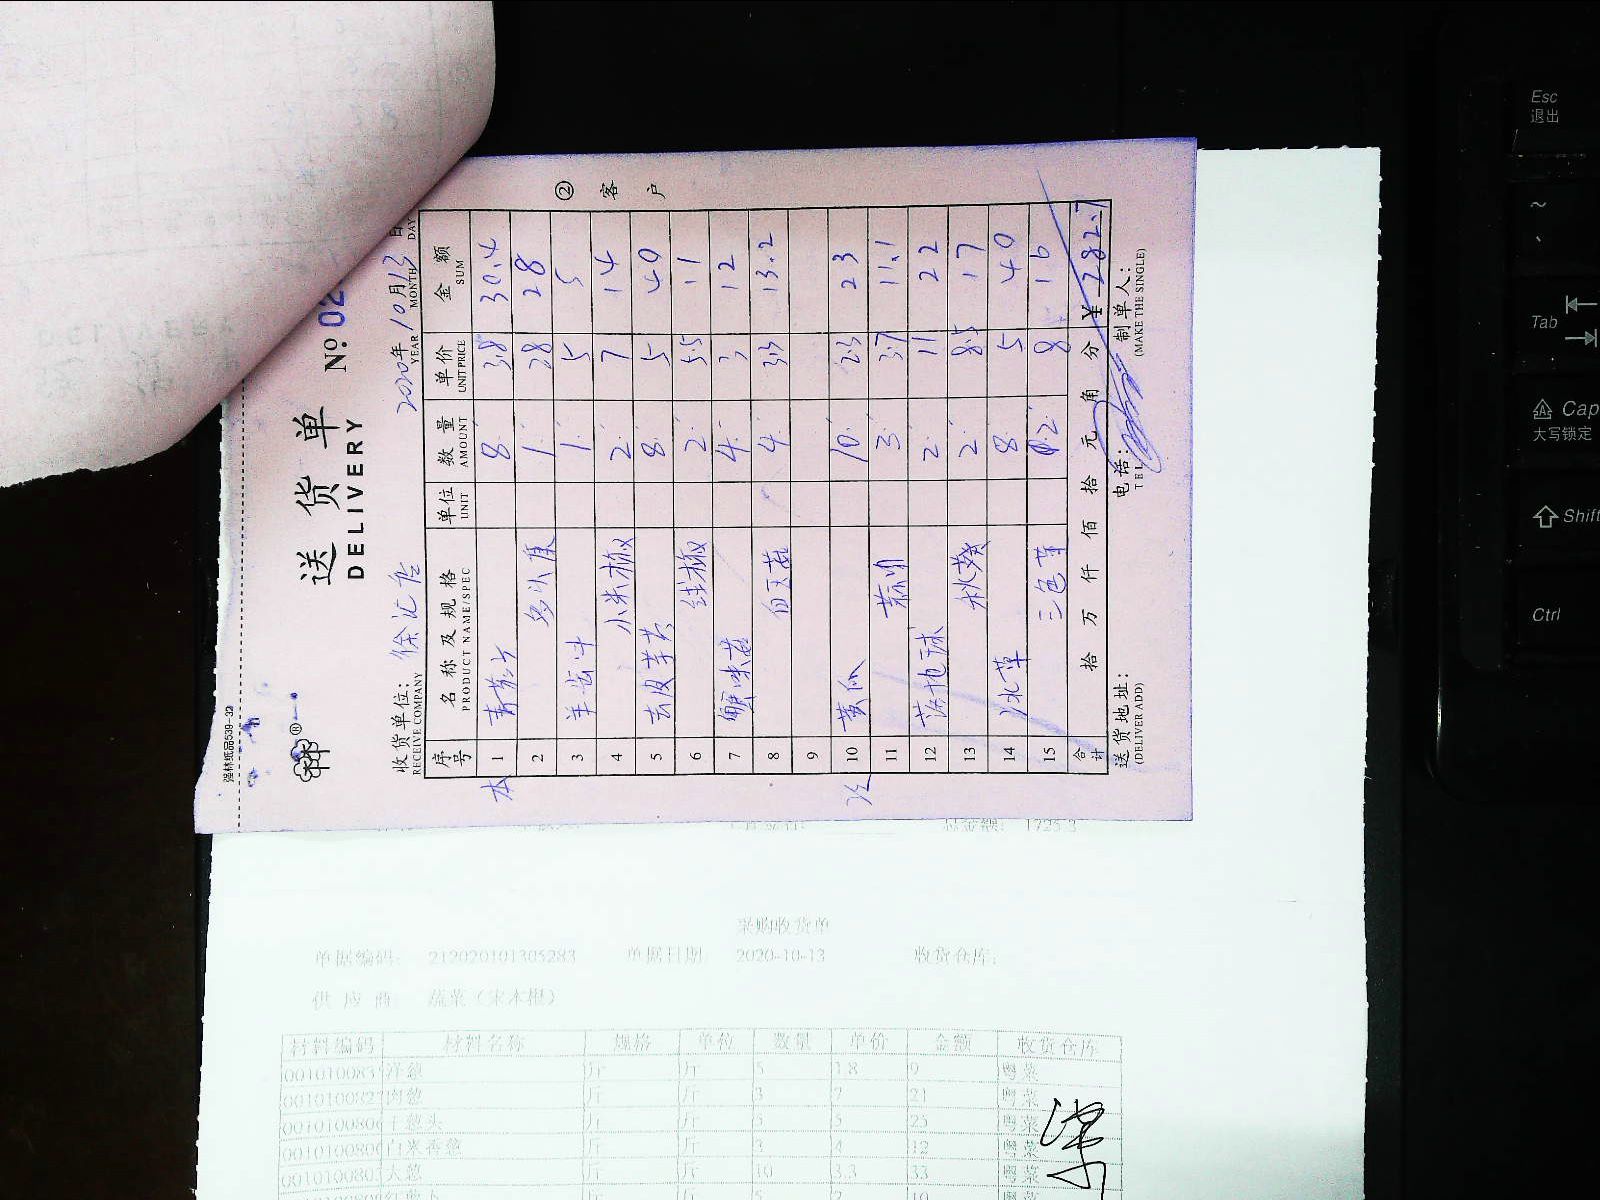 强林纸品539-32
送货单
DELIVERY
No. 02
② 客户
收货单位: 徐汇店
RECEIVE COMPANY
2020年10月13日
YEAR MONTH DAY
序号 名称及规格 单位 数量 单价 金额
PRODUCT NAME/SPEC UNIT AMOUNT UNIT PRICE SUM
本
1 8 3.8 30.4
2 1 28 28
3 1 5 5
4 小米椒 2 7 14
5 去皮芋艿 8 5 40
6 线椒 2 5.5 11
7 蟹味菇 4 3 12
8 白灵菇 4 3.3 13.2
9
10 黄瓜 10 2.3 23
11 3 3.7 11.1
12 落地球 2 11 22
13 秋葵 2 8.5 17
14 冰草 8 5 40
15 三色堇 2 8 16
合计 拾 万 仟 佰 拾 元 角 分 ¥ 282.7
送货地址: 电话: 制单人:
(DELIVER ADD) TEL (MAKE THE SINGLE)
总金额: 1725.3
采购收货单
单据编码: 212020101305283 单据日期: 2020-10-13 收货仓库:
供应商: 蔬菜(宋本根)
材料编码 材料名称 规格 单位 数量 单价 金额 收货仓库
001010083 洋葱 斤 斤 5 1.8 9 粤菜
001010082 肉葱 斤 斤 3 7 21 粤菜
001010080 干葱头 斤 斤 5 5 25 粤菜
001010080 白米香葱 斤 斤 3 4 12 粤菜
001010080 大葱 斤 斤 10 3.3 33 粤菜
Esc
退出
~
Tab
Cap
大写锁定
Shift
Ctrl